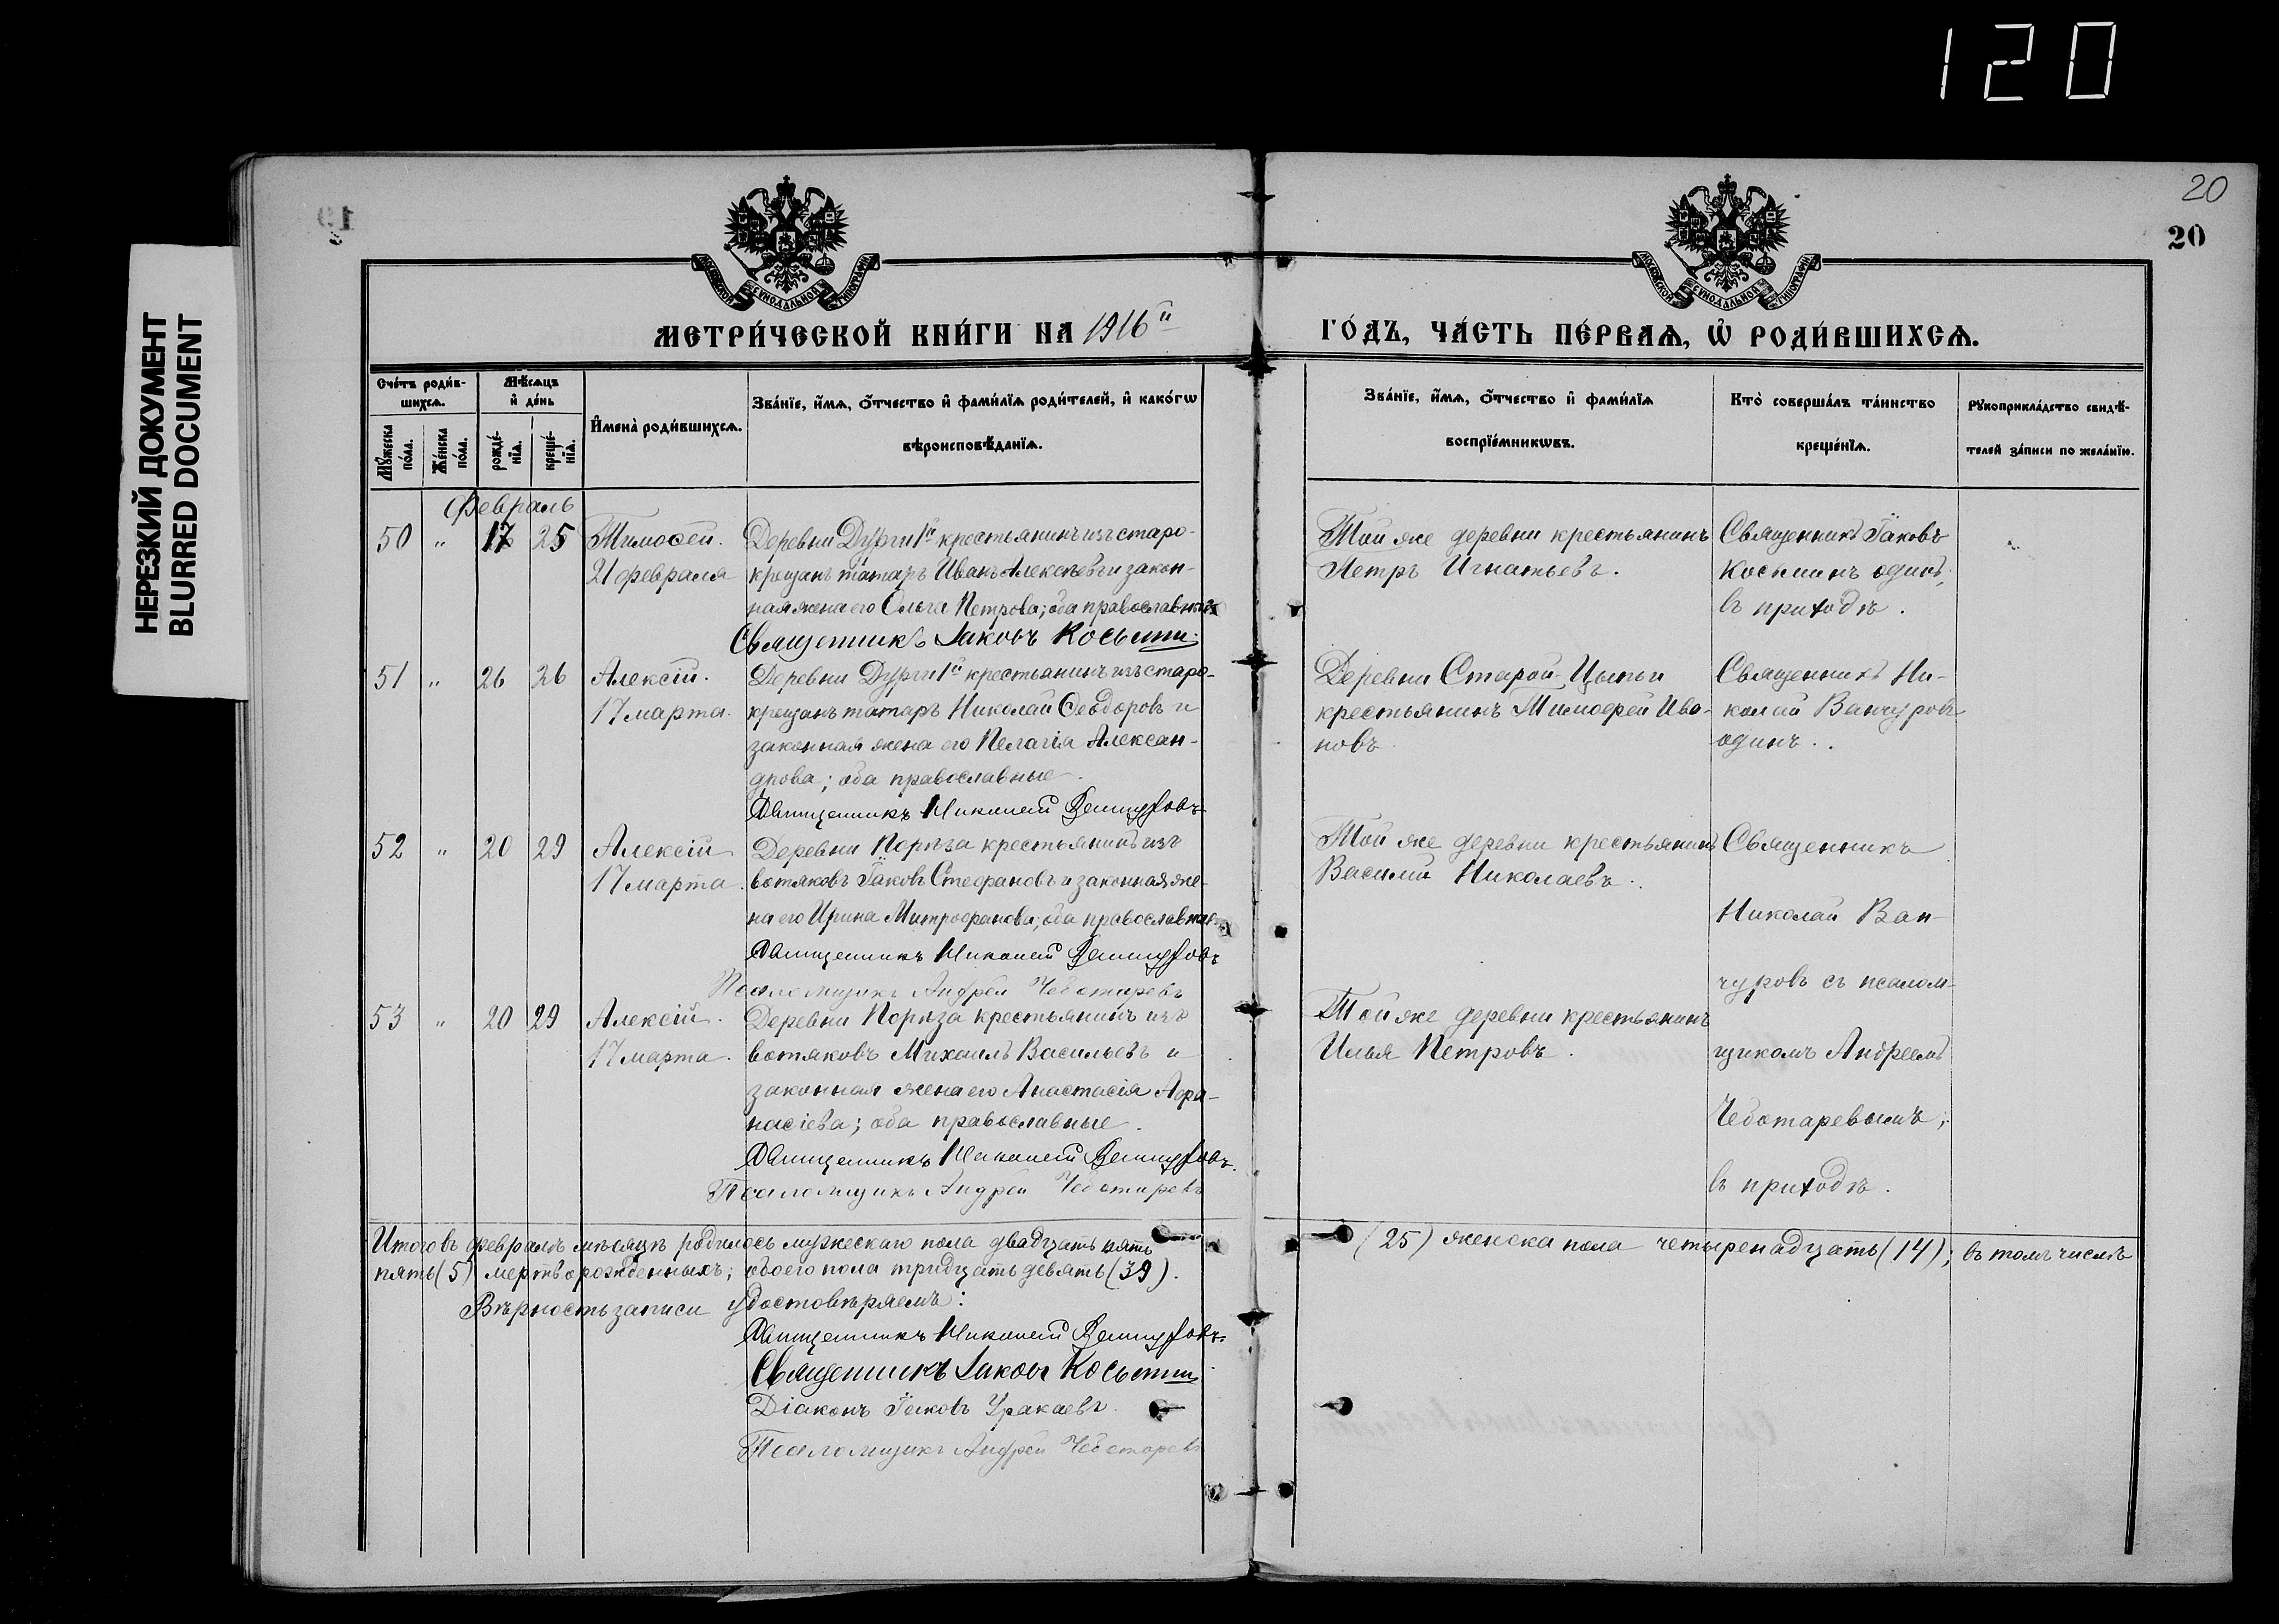 120
НЕРЕЗКИЙ ДОКУМЕНТ
BLURRED DOCUMENT
19
20
20
МОСКОВСКОЙ СѴНОДАЛЬНОЙ ТИПОГРАФІИ
МОСКОВСКОЙ СѴНОДАЛЬНОЙ ТИПОГРАФІИ
МЕТРИ́ЧЕСКОЙ КНИ́ГИ НА 1916й
ГО́ДЪ, ЧА́СТЬ ПЕ́РВАѦ, Ѡ҆ РОДИ́ВШИХСѦ.
Сче́тъ роди́в-
шихсѧ.
Мѣ́сѧцъ
и҆ де́нь
Мꙋ́жеска по́ла.
Же́нска по́ла.
рожде́-
нїѧ.
креще́-
нїѧ.
И҆мена̀ роди́вшихсѧ.
Зва́нїе, и҆́мѧ, ѻ҆́тчество и҆ фами́лїѧ роди́телей, и҆ како́гѡ
вѣроисповѣ́данїѧ.
Зва́нїе, и҆́мѧ, ѻ҆́тчество и҆ фами́лїѧ
воспрїе́мникѡвъ.
Кто̀ соверша́лъ та́инство
креще́нїѧ.
Рꙋкоприкла́дство свидѣ́-
телей за́писи по жела́нїю.
Февраль
50 " 17 25 Тимоѳей.
21 февраля
Деревни Дурги 1й крестьянинъ изъ старо-
крещенъ татаръ Иванъ Алексѣевъ и закон-
ная жена его Ольга Петрова; оба православные
Священникъ Іаковъ Косьмин
Той же деревни крестьянинъ
Петръ Игнатьевъ.
Священникъ Іаковъ
Косминъ одинъ;
въ приходѣ.
51 " 26 26 Алексій.
17 марта.
Деревни Дурги 1й крестьянинъ изъ старо-
крещенъ татаръ Николай Ѳеодоровъ и
законная жена его Пелагія Алексан-
дрова; оба православные.
Священникъ Николай Ванчуровъ
Деревни Старой Цыпьи
крестьянинъ Тимофей Ива-
новъ
Священникъ Ни-
колай Ванчуровъ
одинъ.
52 " 20 29 Алексій
17 марта.
Деревни Порѣза крестьянинъ изъ
вотяковъ Іаковъ Стефановъ и законная же-
на его Ирина Митрофанова; оба православные.
Священникъ Николай Ванчуровъ
Псаломщикъ Андрей Чеботаревъ
Той же деревни крестьянинъ
Василій Николаевъ.
Священникъ
Николай Ван-
чуровъ съ псалом-
щикомъ Андреемъ
Чеботаревымъ;
въ приходѣ.
53 " 20 29 Алексій.
17 марта.
Деревни Порѣза крестьянинъ изъ
вотяковъ Михаилъ Васильевъ и
законная жена его Анастасія Афа-
насіева; оба православные.
Священникъ Николай Ванчуровъ.
Псаломщикъ Андрей Чеботаревъ
Той же деревни крестьянинъ
Илья Петровъ.
Итого въ февралѣ мѣсяцѣ родилось мужескаго пола двадцать пять (25) женска пола четыренадцать (14); въ томъ числѣ
пять (5) мертворожденныхъ; обоего пола тридцать девять (39).
Вѣрность записи удостовѣряемъ:
Священникъ Николай Ванчуровъ.
Священникъ Іаковъ Косьмин
Діаконъ Іаковъ Уракаевъ.
Псаломщикъ Андрей Чеботаревъ